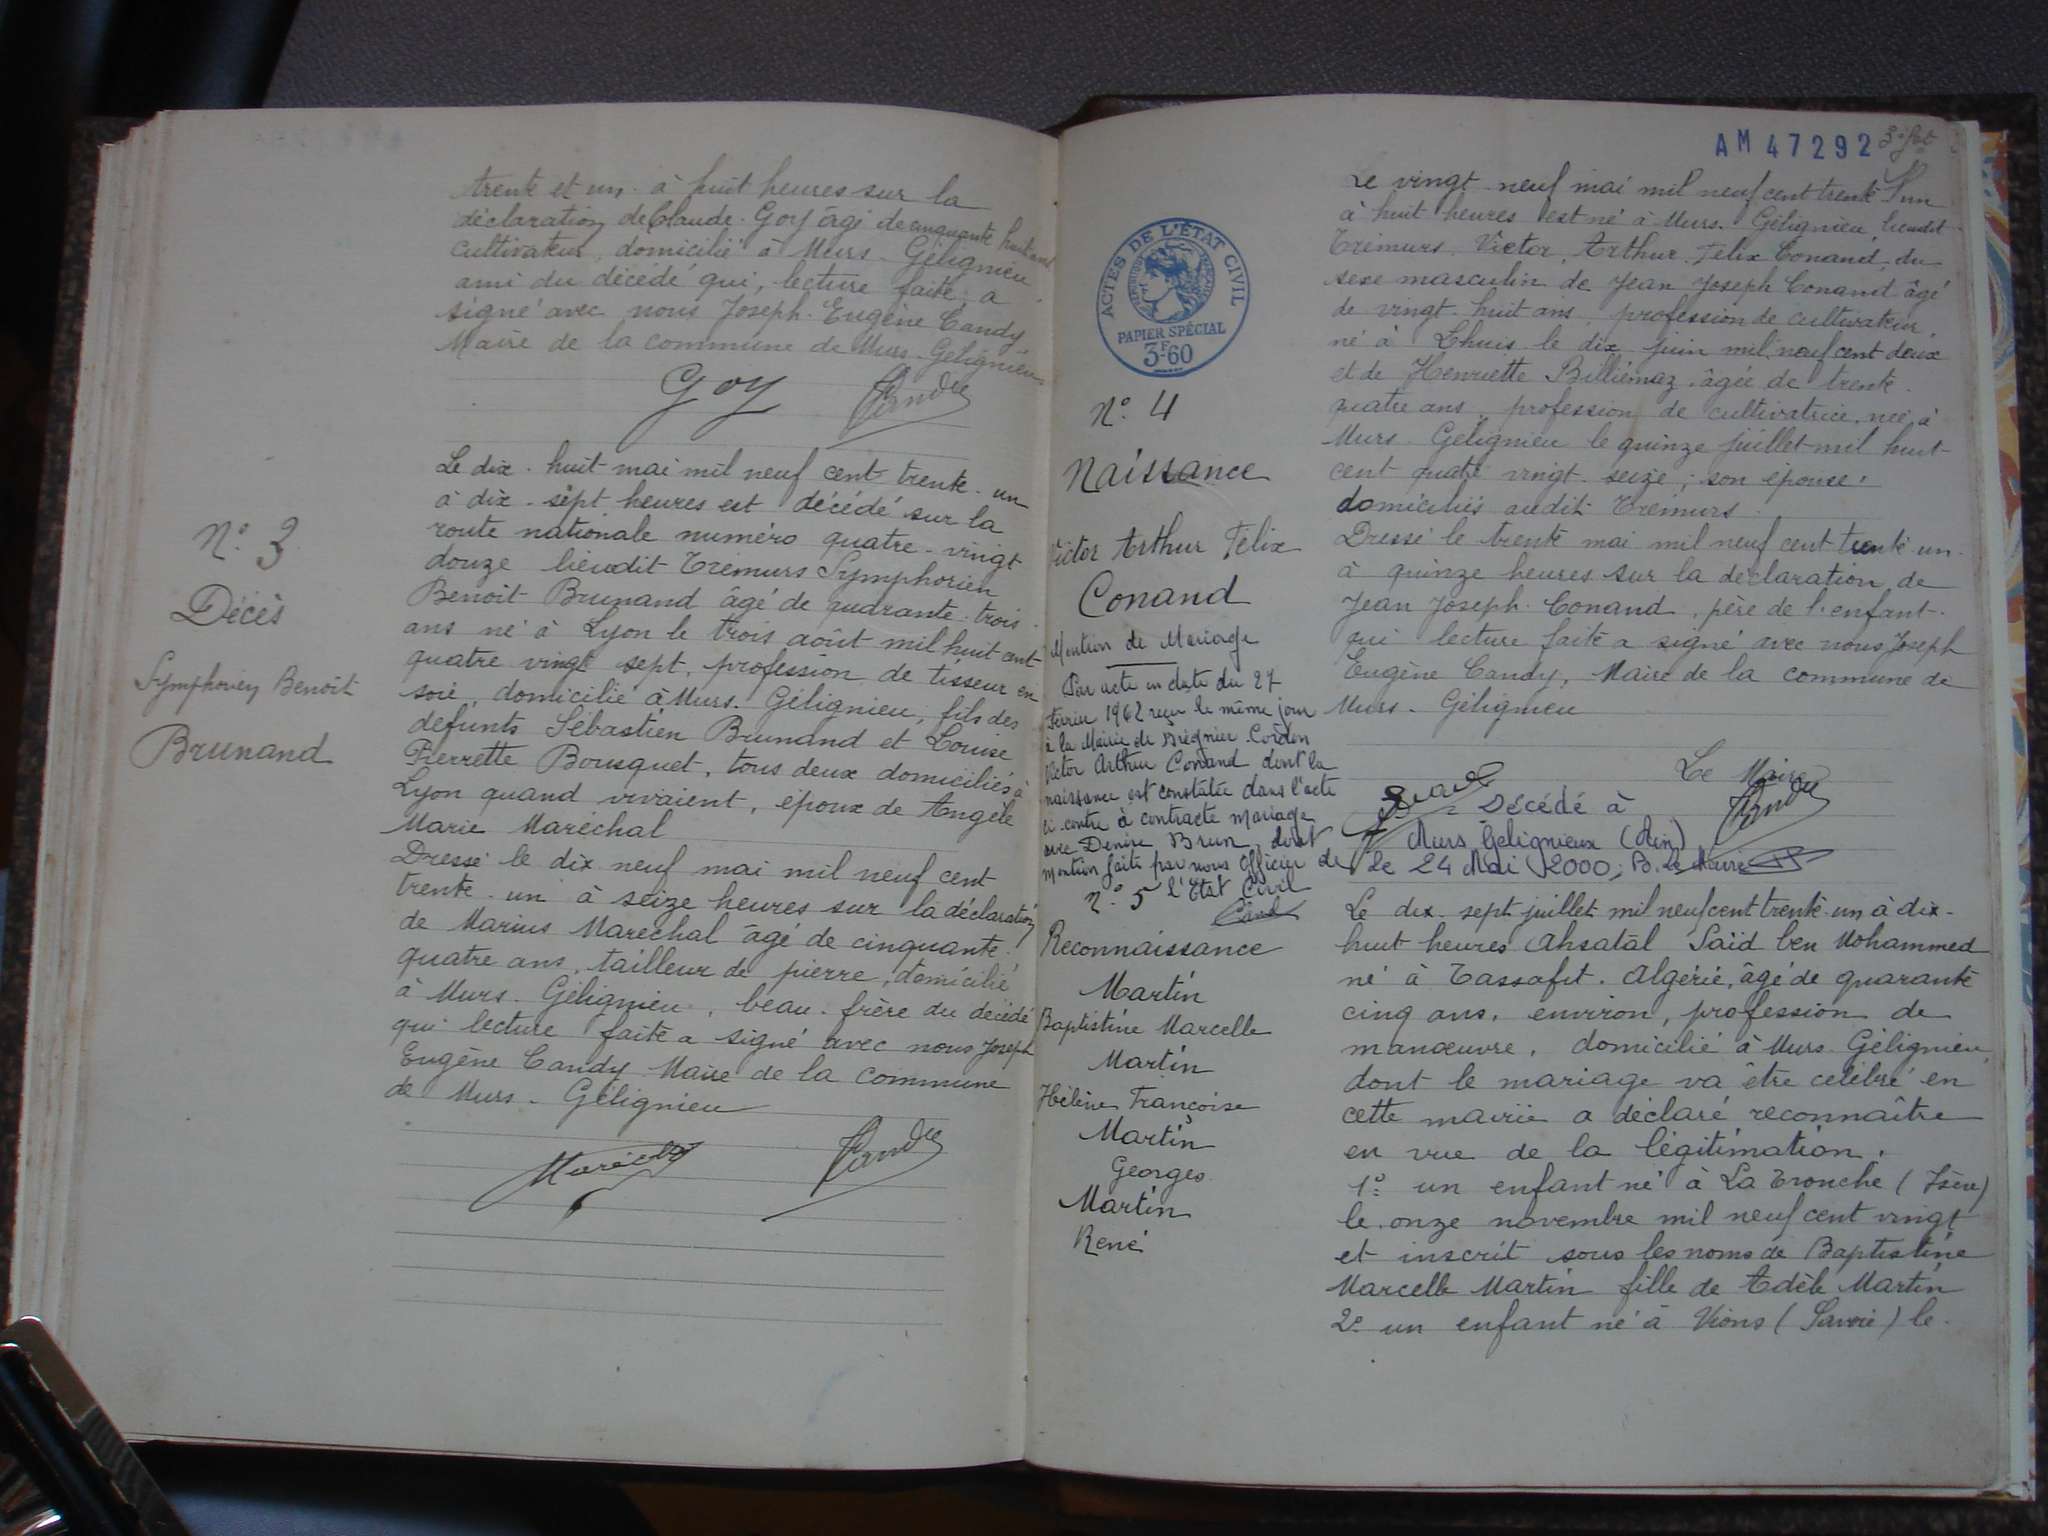 trente et un à huit heures sur la
déclaration de Claude Goy âgé de cinquante huit ans
cultivateur, domicilié à Murs-Gélignieu
ami du décédé qui, lecture faite, a
signé avec nous Joseph Eugène Candy
Maire de la commune de Murs-Gélignieu
Goy Candy
N° 3
Décès
Symphorien Benoît
Brunand
Le dix-huit mai mil neuf cent trente-un
à dix-sept heures est décédé sur la
route nationale numéro quatre-vingt
douze lieudit Trémurs Symphorien
Benoît Brunand âgé de quarante-trois
ans né à Lyon le trois août mil huit cent
quatre vingt sept, profession de tisseur en
soie, domicilié à Murs-Gélignieu, fils des
défunts Sébastien Brunand et Louise
Pierrette Bousquet, tous deux domiciliés à
Lyon quand vivaient, époux de Angèle
Marie Maréchal
Dressé le dix neuf mai mil neuf cent
trente-un à seize heures sur la déclaration
de Marius Maréchal âgé de cinquante-
quatre ans, tailleur de pierre, domicilié
à Murs-Gélignieu, beau-frère du décédé
qui lecture faite a signé avec nous Joseph
Eugène Candy Maire de la commune
de Murs-Gélignieu
Maréchal Candy
AM 47292
ACTES DE L'ÉTAT CIVIL
PAPIER SPÉCIAL
3F60
N° 4
Naissance
Victor Arthur Félix
Conand
Mention de Mariage
Par acte en date du 27
Février 1962 reçu le même jour
à la Mairie de Brégnier-Cordon
Victor Arthur Conand dont la
naissance est constatée dans l'acte
ci-contre à contracté mariage
avec Denise Brun, dont
mention faite par nous Officier de
l'Etat Civil
Le vingt-neuf mai mil neuf cent trente l'un
à huit heures est né à Murs-Gélignieu lieudit
Trémurs Victor, Arthur, Félix Conand, du
sexe masculin de Jean Joseph Conand âgé
de vingt-huit ans, profession de cultivateur,
né à Lhuis le dix juin mil neuf cent deux
et de Henriette Billiémaz, âgée de trente-
quatre ans, profession de cultivatrice, née à
Murs-Gélignieu le quinze juillet mil huit
cent quatre vingt-seize; son épouse,
domiciliés audit Trémurs.
Dressé le trente mai mil neuf cent trente-un
à quinze heures sur la déclaration de
Jean Joseph Conand, père de l'enfant
qui lecture faite a signé avec nous Joseph
Eugène Candy, Maire de la commune de
Murs-Gélignieu
Le Maire
Candy
Décédé à
Murs Gélignieux (Ain)
le 24 Mai 2000; P. Le Maire
N° 5
Reconnaissance
Martin
Baptistine Marcelle
Martin
Hélène Françoise
Martin
Georges
Martin
René
Le dix-sept juillet mil neuf cent trente-un à dix-
huit heures Ahsatal Saïd ben Mohammed
né à Tassafit. Algérie, âgé de quarante
cinq ans, environ, profession de
manœuvre, domicilié à Murs-Gélignieu,
dont le mariage va être célébré en
cette mairie a déclaré reconnaître
en vue de la légitimation,
1° un enfant né à La Tronche (Isère)
le onze novembre mil neuf cent vingt
et inscrit sous les noms de Baptistine
Marcelle Martin fille de Adèle Martin
2° un enfant né à Vions (Savoie) le